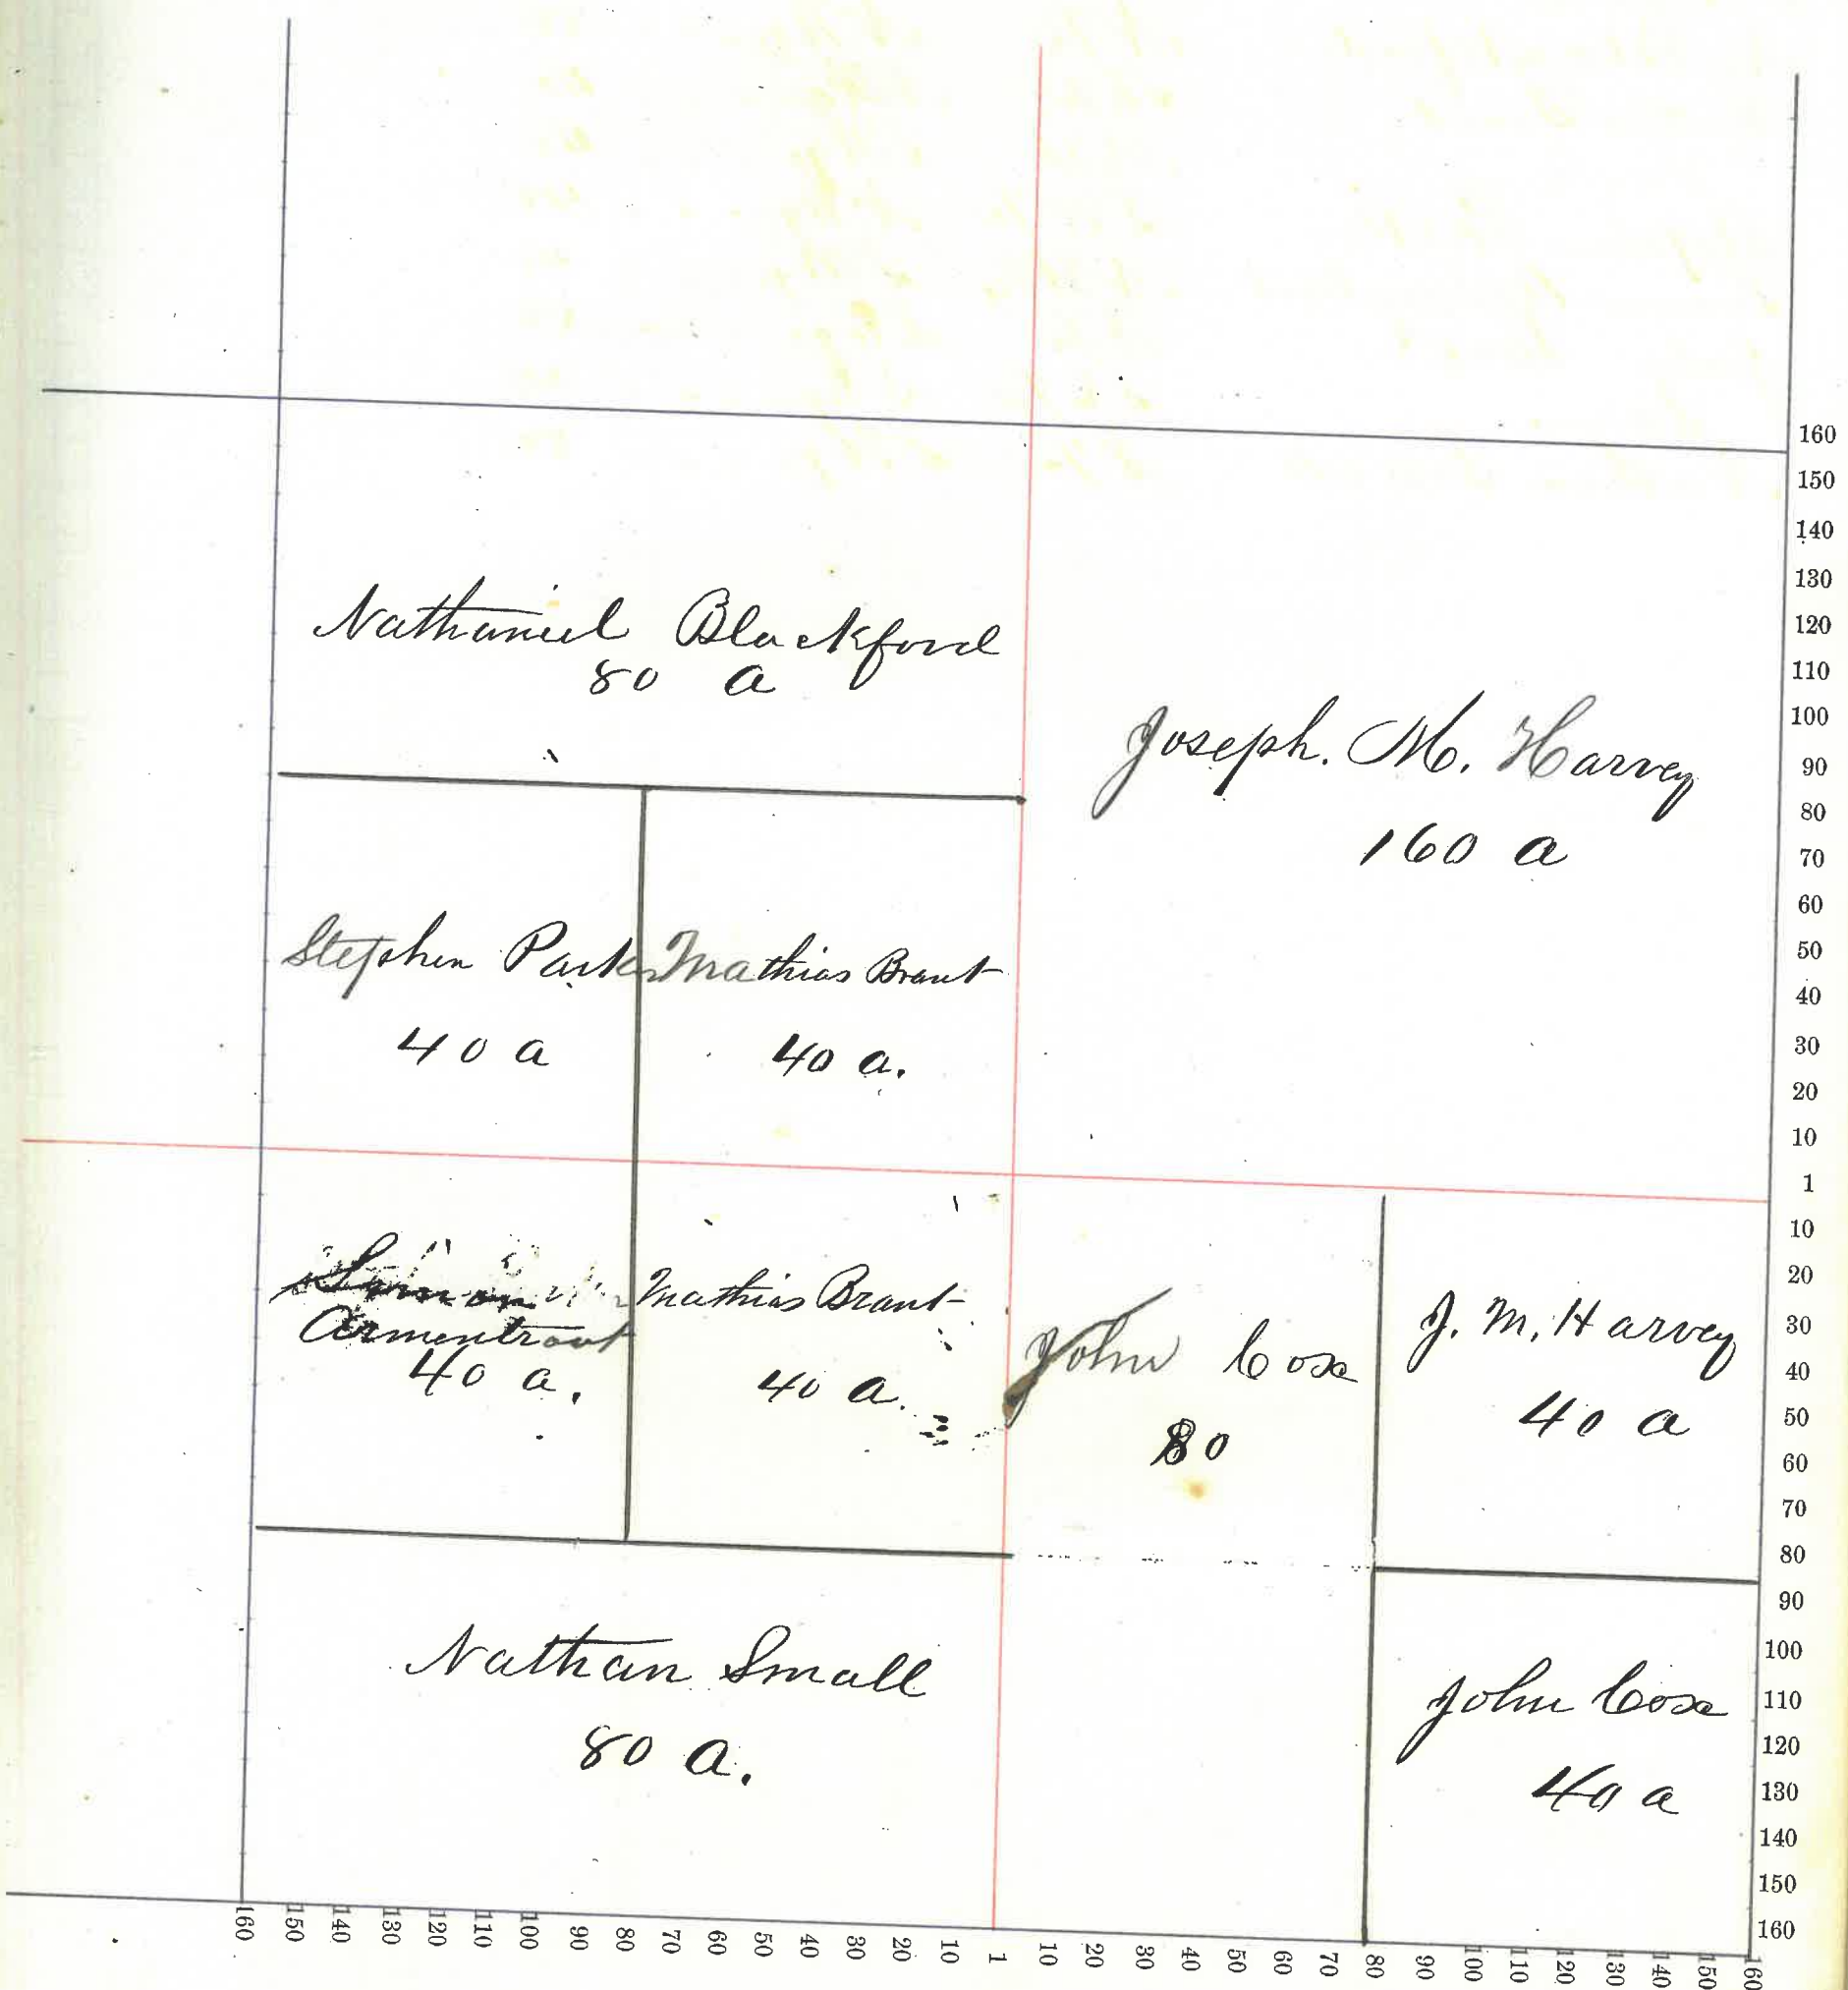 Nathaniel Blackford
80 a
Joseph. M. Harvey
160 a
Stephen Parker
40 a
Mathias Brant
40 a.
Armentrout
40 a.
Mathias Brant
40 a.
John Cox
80
J. M. Harvey
40 a
Nathan Small
80 a.
John Cox
40 a
160
150
140
130
120
110
100
90
80
70
60
50
40
30
20
10
1
10
20
30
40
50
60
70
80
90
100
110
120
130
140
150
160
160 150 140 130 120 110 100 90 80 70 60 50 40 30 20 10 1 10 20 30 40 50 60 70 80 90 100 110 120 130 140 150 160